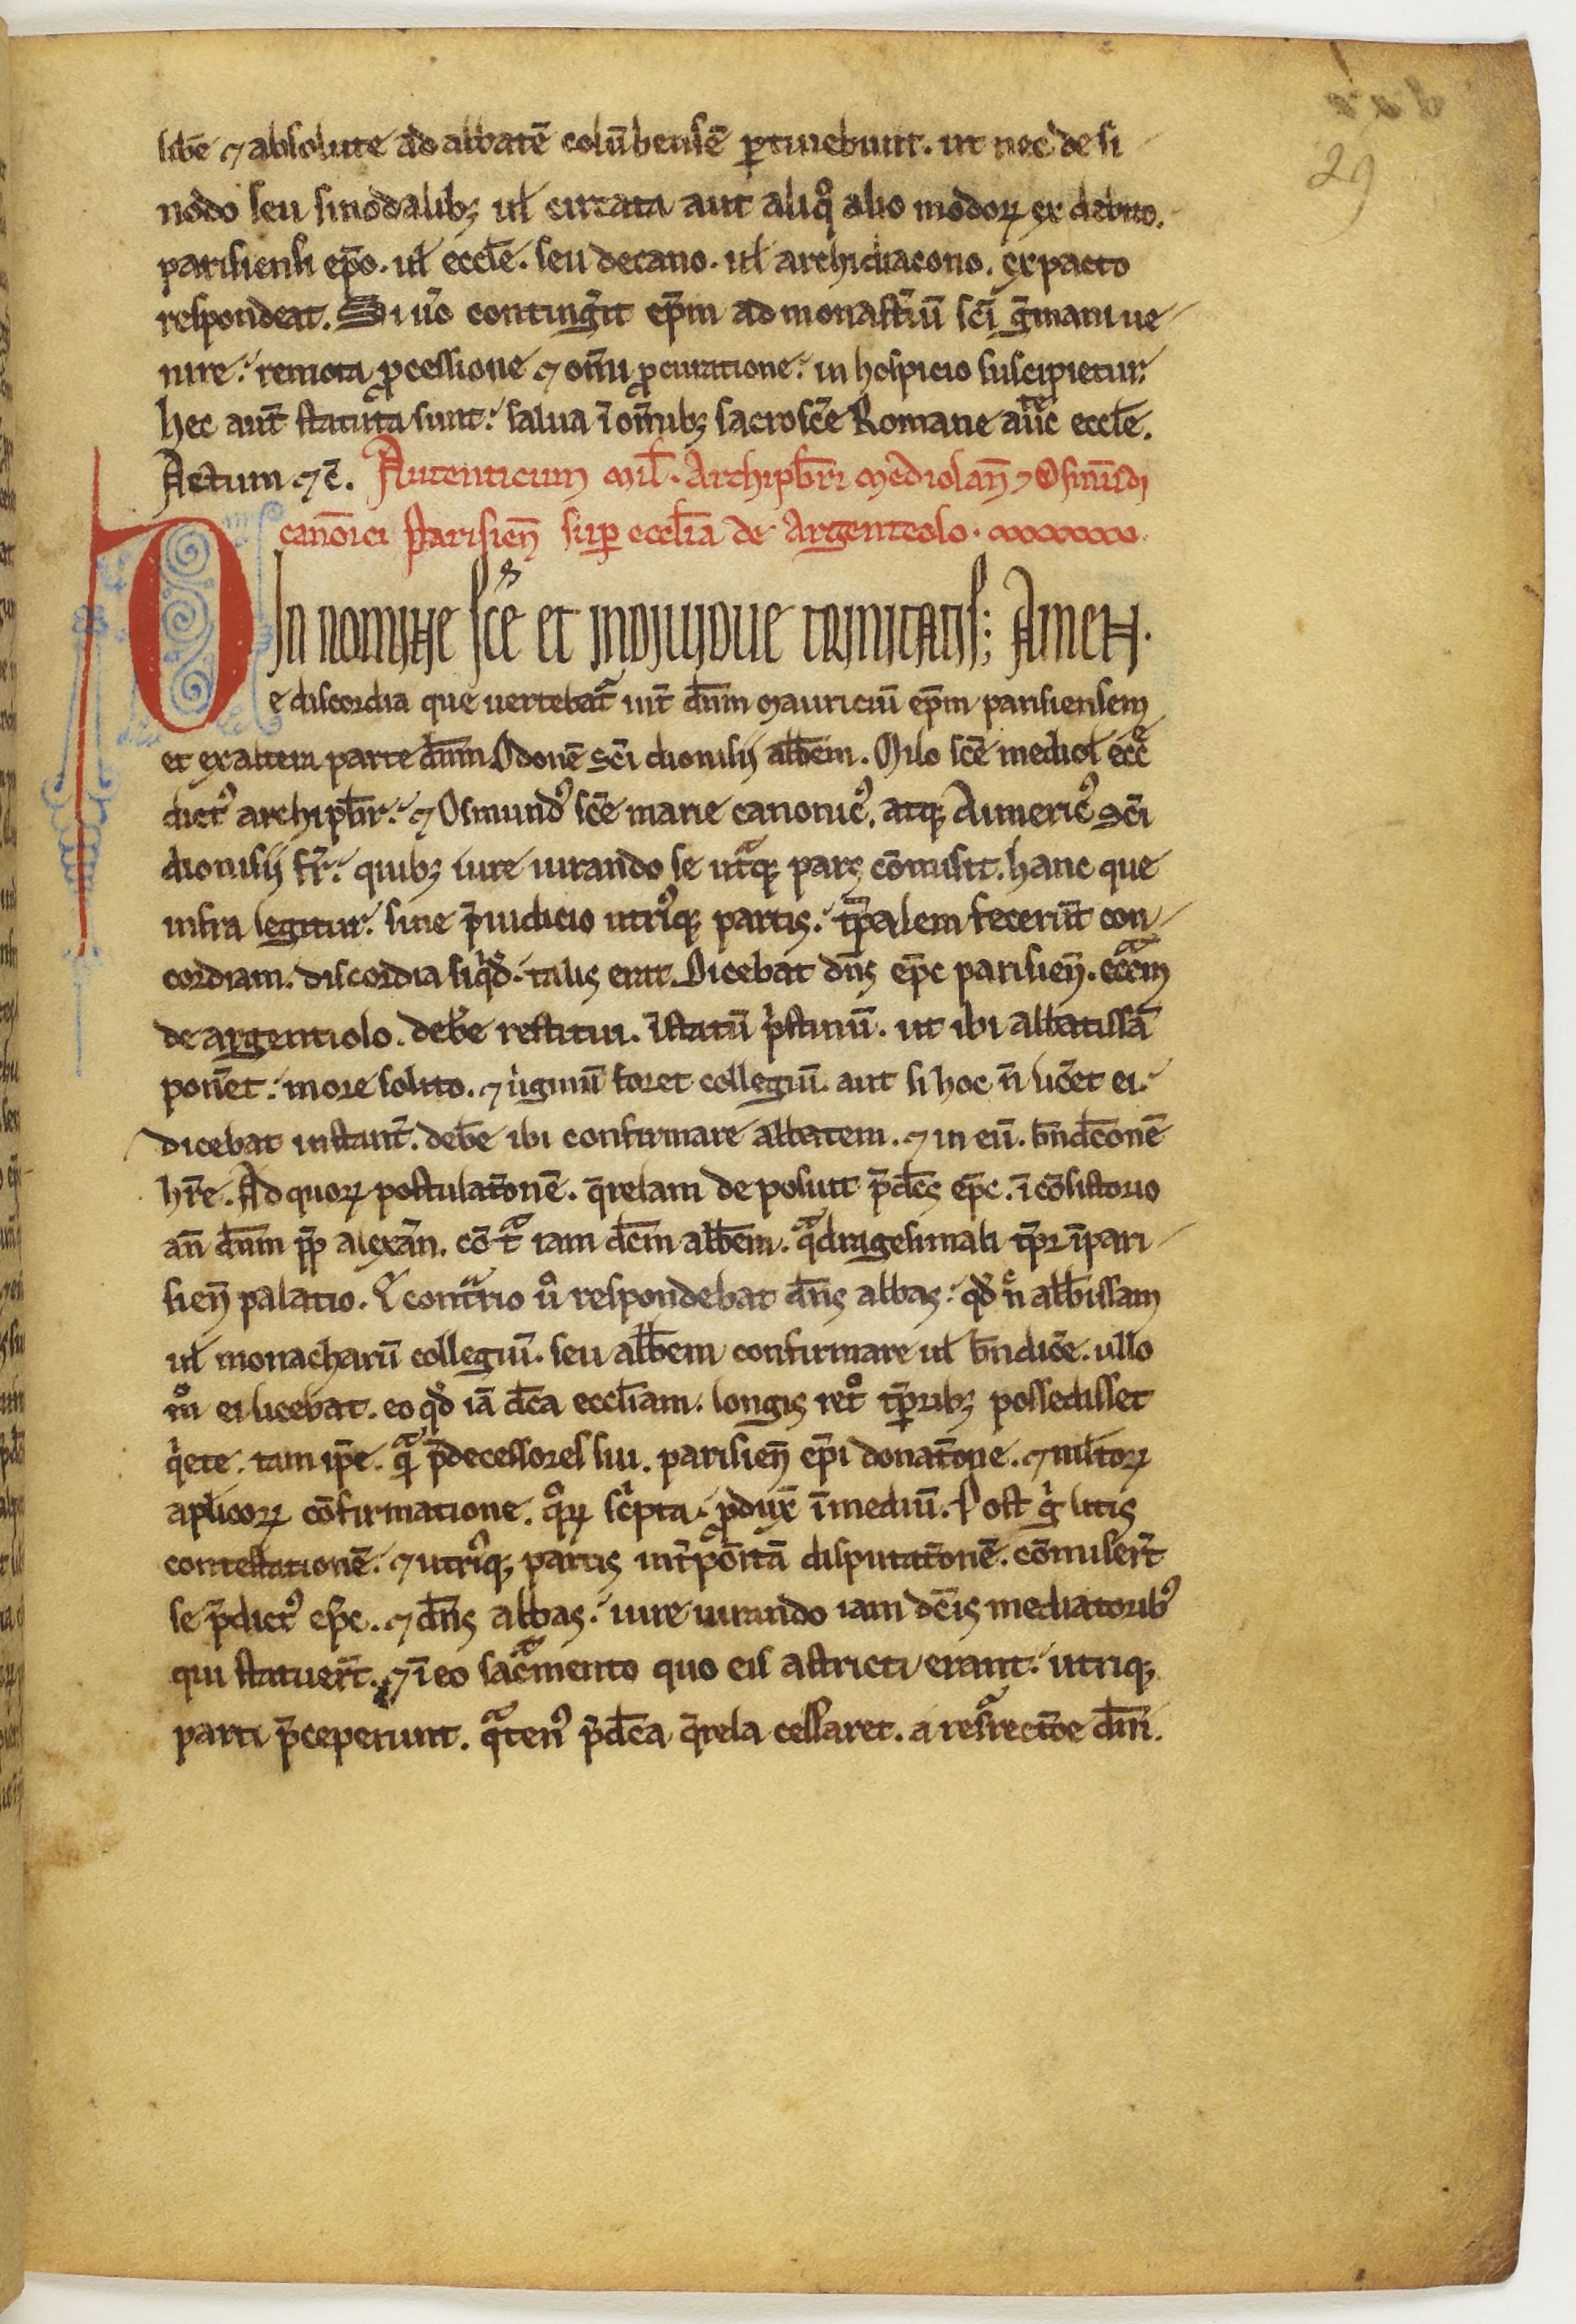 29
lib̄e ⁊ absolute ad abbatē colūbensē ꝑtinebunt. ut nec de si
nodo seu sinodalibꝫ ul̄ circata aut aliqͦ alio modoꝝ ex debito.
parisiensi ep̄o. ul̄ eccl̄e. seu decano. ul̄ archidiacono. ex pacto
respondeat. Si ūo continḡit ep̄m ad monast̄iū sc̄i ḡmani ue
nire. remota ꝓcessione ⁊ om̄i ꝓcuratione. in hospicio suscipietur.
hec aut̄ statuta sunt. salua ī om̄ibꝫ sacrosc̄e Romane auc̄te eccl̄e.
Actum ⁊ c̄. Autenticum Mil̄. Archipb̄ri Mediolan̄ ⁊ Osmūdi
canōici Parisien̄ suꝑ eccl̄ia de Argenteolo.
In nomine sc̄e et indiuidue trinitatis; Amen.
De discordia que uertebat̄ int̄ dn̄m Mauriciū ep̄m parisiensem
et ex altera parte dn̄m Odonē sc̄i dionisii abb̄em. Milo sc̄e mediol̄ ecc̄e
dictꝰ archipb̄r. ⁊ Osmundꝰ sc̄e marie canonicꝰ. atqꝫ Aimericꝰ sc̄i
dionisii fr̄. quibꝫ iure iurando se utᵃqꝫ pars cōmisit. hanc que
infra legitur. sine p̄iudicio utriꝰqꝫ partis. tp̄alem fecer̄t con
cordiam. discordia siqͥd̄. talis erat. Dicebat dn̄s ep̄c parisien̄. eccᵃm
de argentiolo. deb̄e restitui. ī statū pͥstinū. ut ibi abbatissā
pon̄et. more solito. ⁊ uͥginū foret collegiū. aut si hoc n̄ lic̄et ei.
dicebat instant̄. deb̄e ibi confirmare abbatem. ⁊ in eū. bn̄dc̄onē
hr̄e. Ad quoꝝ postulat̄onē. q̄relam deposuit p̄dc̄s ep̄c. ī cōsistorio
an̄ dn̄m pp̄ alexan̄. cōtͣ iam dc̄m abb̄em. qᵃdragesimali tp̄r ī pari
sien̄ palatio. E contᵃrio uͦ respondebat dn̄s abbas. qd̄ n̄ abb̄issam
ul̄ monacharū collegiū. seu abb̄em confirmare ul̄ bn̄dic̄e. ullo
mͦ ei licebat. eo qd̄ iā dc̄a eccl̄iam. longis retͦ tp̄ribꝫ possedisset
qͥete. tam ip̄e. qᵃ p̄decessores sui. parisien̄ ep̄i donat̄one. ⁊ mltoꝝ
apl̄icoꝝ cōfirmatione. qͦꝝ scͥpta. ꝓdux̄ ī mediū. Post gͥ litis
contestationē. ⁊ utriꝰqꝫ partis int̄poīta disputat̄onē. cōmiser̄t
se p̄dictꝰ ep̄c. ⁊ dn̄s abbas. iure iurando iam dc̄is mediatoribꝰ
qui statuer̄t. ⁊ ī eo sacᵃmento quo eis astricti erant. utriqꝫ
parti p̄ceperunt. qᵃtenꝰ p̄dc̄a q̄rela cessaret. a resᵃrectōe dn̄i.